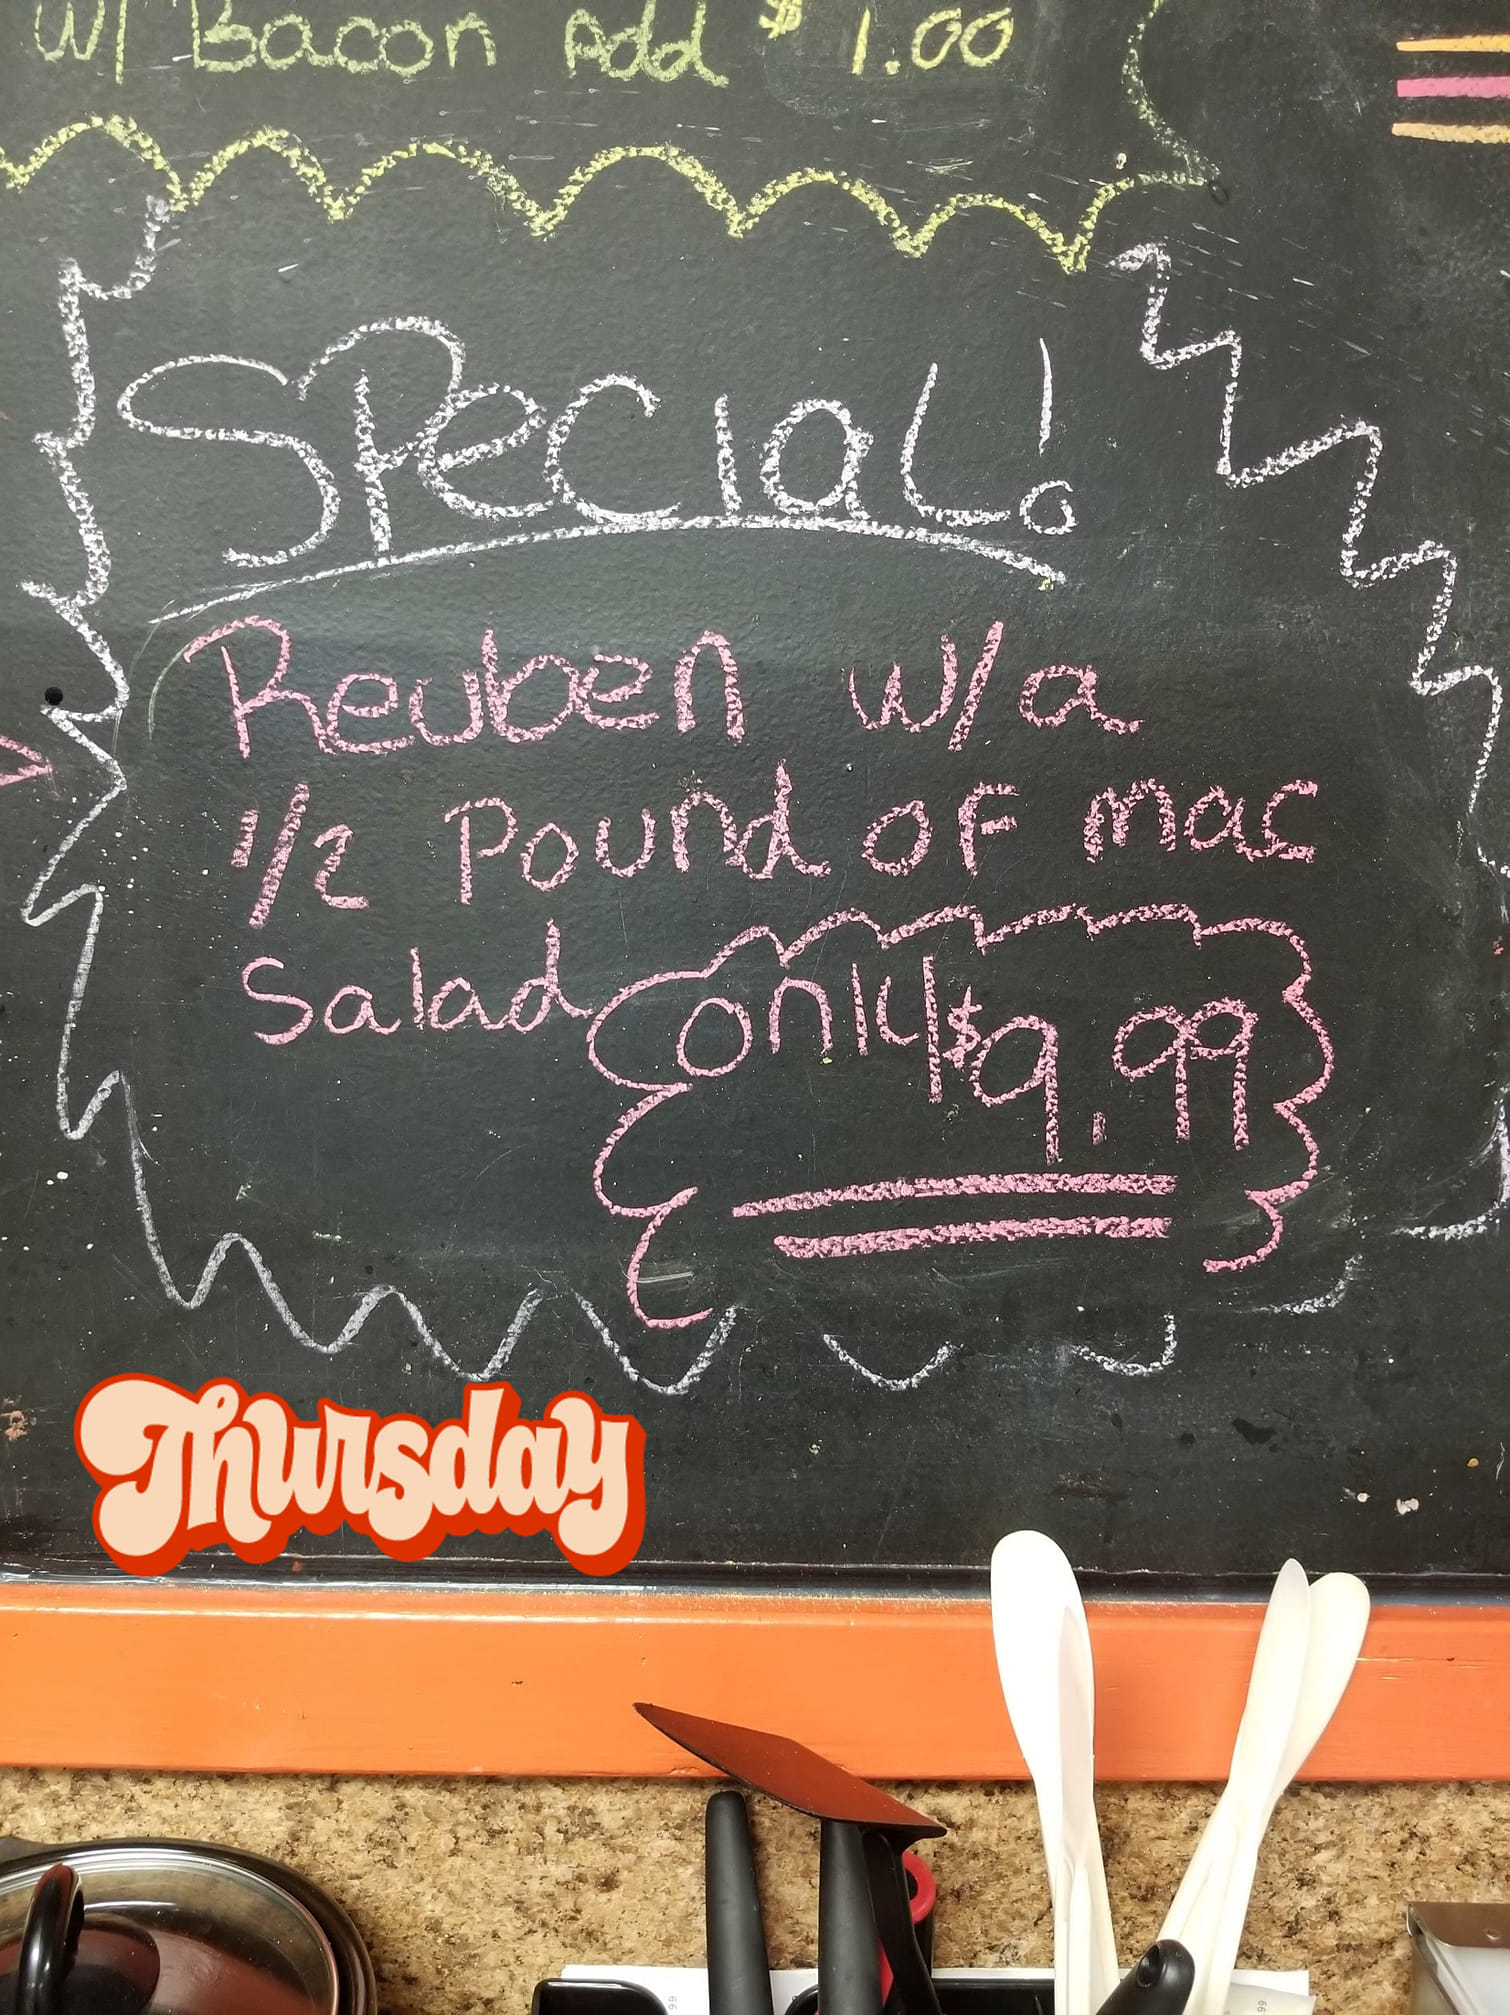 W/ Bacon Add $1.00
SPecial!
Reuben w/a
1/2 Pound of mac
Salad only $9.99
Thursday
99
99